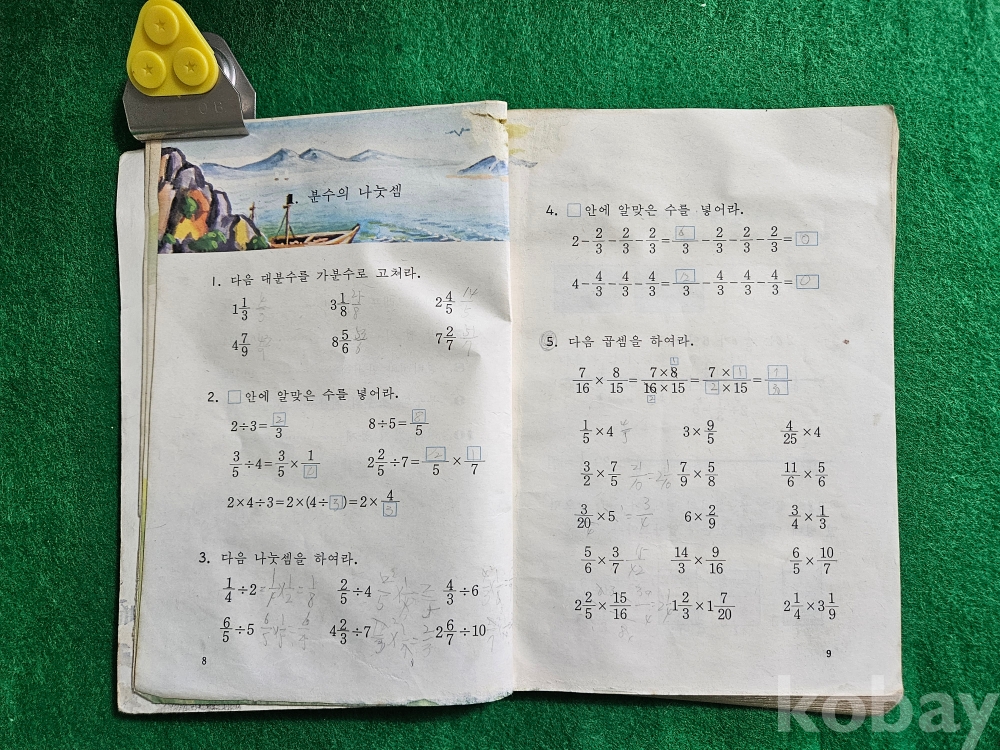 1. 분수의 나눗셈
1. 다음 대분수를 가분수로 고쳐라.
1 1/3 3 1/8 2 4/5 14
4 7/9 8 5/6 7 2/7
2. □안에 알맞은 수를 넣어라.
2÷3=2/3 8÷5=8/5
3/5÷4=3/5×1/ 2 2/5÷7=12/5×1/7
2×4÷3=2×(4÷3)=2×4/3
3. 다음 나눗셈을 하여라.
1/4÷2 2/5÷4 4/3÷6
6/5÷5 4 2/3÷7 2 6/7÷10
8
4. □안에 알맞은 수를 넣어라.
2-2/3-2/3-2/3=6/3-2/3-2/3-2/3=0
4-4/3-4/3-4/3=12/3-4/3-4/3-4/3=0
5. 다음 곱셈을 하여라.
7/16×8/15=7×8/16×15=7×1/2×15=
1/5×4 4/5 3×9/5 4/25×4
3/2×7/5 21/10 7/9×5/8 11/6×5/6
3/20×5 6×2/9 3/4×1/3
5/6×3/7 14/3×9/16 6/5×10/7
2 2/5×15/16 1 2/3×1 7/20 2 1/4×3 1/9
9
kobay